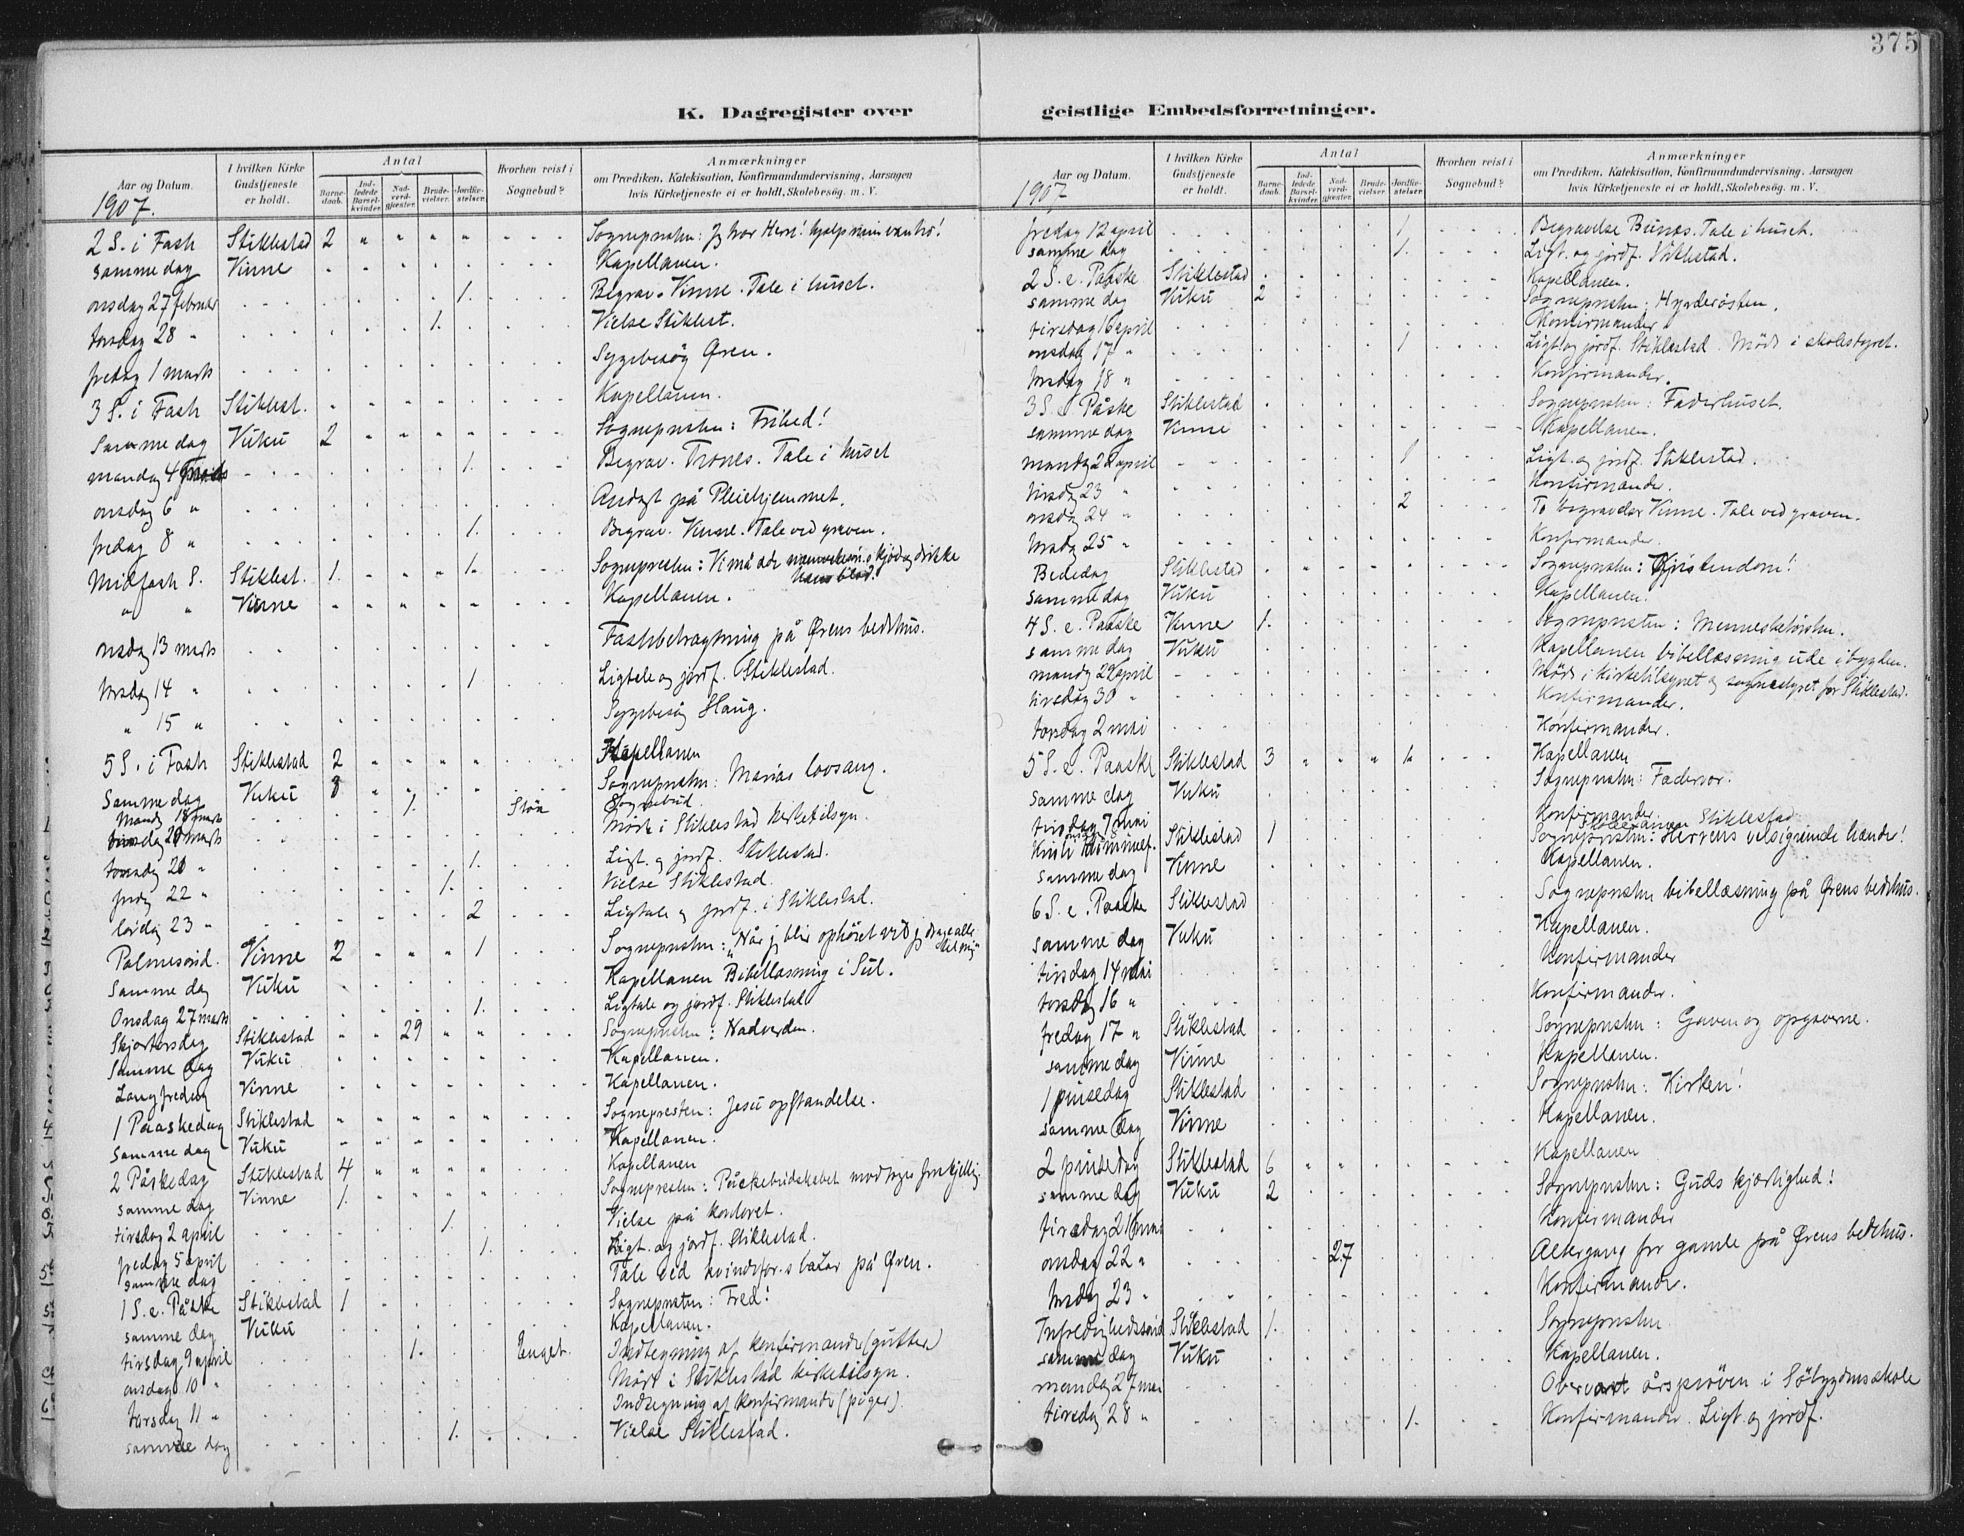 375
K. Dagregister over geistlige Embedsforretninger.
Aar og Datum. I hvilken Kirke Gudstjeneste er holdt. Antal Barnedaab. Indledede Barselkvinder. Nadverdgjester. Brudevielser. Jordfæstelser. Hvorhen reist i Sognebud? Anmærkninger om Prædiken, Katekisation, Konfirmandundervisning, Aarsagen hvis Kirketjeneste ei er holdt, Skolebesøg. m. V.
1907.
2 S. i Fast Stiklestad 2 " " " " Sognepresten: Jeg tror Herre! hjælp min vantro!
samme dag Vinne Kapellanen.
onsdag 27 februar 1. Begrav. Vinne. Tale i huset.
torsdag 28 " 1. Vielse Stiklest.
fredag 1 marts Sygebesøg Øren.
3 S. i Fast Stiklest. Kapellanen.
Samme dag Vuku 2 Sognepresten: Frihed!
mandag 4 marts 1. Begrav. Trones. Tale i huset
onsdag 6 " Andagt på Pleiehjemmet.
fredag 8 " 1. Begrav. Vinne. Tale ved graven.
Midfast S. Stiklest. 1. 1. Sognepresten: Vi må æde kjød og drikke hans blod!
" " Vinne Kapellanen.
onsdag 13 marts Fastebetragtning på Ørens bedehus.
torsdag 14 " 1 Ligtale og jordf. Stiklestad.
" 15 " Sygebesøg Haug.
5 S. i Fast Stiklestad 2 Kapellanen
Samme dag Vuku 8 Sognepresten: Marias lovsang.
Mandag 18 marts 1. Sognebud.
marts Møte i Stiklestad kirketilsyn.
torsdag " 1. Ligt. og jordf. Stiklestad.
fredag 22 " 1. Vielse Stiklestad.
lørdag 23 " 2 Ligtale og jordf. i Stiklestad.
Palmesønd. Vinne 2 1 Sognepresten: "Når jeg blir ophøiet vil jeg drage alle til mig"
Samme dag Vuku Kapellanen Bibellæsning i Sul.
Onsdag 27 marts 1. Ligtale og jordf. Stiklestad
Skjærtorsdag Stiklestad 29 Sognepresten: Nadverden.
Samme dag Vuku Kapellanen.
Langfredag Vinne Kapellanen.
1 Paaskedag Stiklestad Sognepresten: Jesu opstandelse.
Samme dag Vuku Kapellanen.
2 Påskedag Stiklestad 4 Kapellanen
samme dag Vinne 1. Sognepresten: Påskebudskabet
tirsdag 2 april 1. Vielse på kontoret.
fredag 5 april 1. Ligt. og jordf. Stiklestad.
samme dag Tale ved kvindefor.s bazar på Øren.
1 S. e. Påske Stiklestad 1 Sognepresten: Fred!
samme dag Vuku Kapellanen.
tirsdag 9 april 1. Indtegning af konfirmander (gutter)
onsdag 10 " Møte i Stiklestad kirketilsyn.
torsdag 11 " Indtegning af konfirmander (piger).
samme dag 1. Vielse Stiklestad.
Aar og Datum. I hvilken Kirke Gudstjeneste er holdt. Antal Barnedaab. Indledede Barselkvinder. Nadverdgjester. Brudevielser. Jordfæstelser. Hvorhen reist i Sognebud? Anmærkninger om Prædiken, Katekisation, Konfirmandundervisning, Aarsagen hvis Kirketjeneste ei er holdt, Skolebesøg. m. V.
1907.
fredag 12 april 1. Begravelse Tale i huset.
samme dag 1. Ligt. og jordf. Stiklestad.
2 S. e. Paaske Stiklestad Kapellanen.
samme dag Vuku 2 Sognepresten: Hyrderøsten.
tirsdag 16 april Konfirmander
onsdag 17 " 1 Ligt. og jordf. Stiklestad. Møde i skolestyret.
torsdag 18 " Konfirmander.
3 S. e. Påske Stiklestad Sognepresten: Faderhuset.
samme dag Vinne Kapellanen.
mandag 22 april 1 Ligt. og jordf. Stiklestad.
tirsdag 23 " Konfirmander.
onsdag 24 " 2 To begravelser Vinne. Tale ved graven.
torsdag 25 " Konfirmander.
Bededag Stiklestad Sognepresten: Kristendom!
samme dag Vuku Kapellanen.
4 S. e. Paaske Vinne 1. Sognepresten:
samme dag Vuku Kapellanen bibellæsning ude i bygden.
mandag 29 april Møde i kirketilsynet og sognestyret for Stiklestad.
tirsdag 30 " Konfirmander.
torsdag 2 mai Konfirmander.
5 S. e. Paaske Stiklestad 3 " " " 1 Kapellanen
samme dag Vuku Sognepresten: Fadervor.
tirsdag 7 mai Konfirmander.
Kristi Himmelf. Stiklestad 1 Sognepresten: Herrens velsignende hænder!
samme dag Vinne Kapellanen.
6 S. e. Paaske Stiklestad Sognepresten bibellæsning på Ørens bedehus.
samme dag Vuku Kapellanen.
tirsdag 14 mai Konfirmander
torsdag 16 " Konfirmander.
fredag 17 " Stiklestad Sognepresten: Gaven og opgaverne.
samme dag Vinne Kapellanen.
1 pinsedag Stiklestad Sognepresten: Kirken!
samme dag Vinne Kapellanen.
2 pinsedag Stiklestad 6 Kapellanen
samme dag Vuku 2 Sognepresten: Guds kjærlighed!
tirsdag 21 mai Konfirmander
onsdag 22 " 27 Altergang for gamle på Ørens bedehus.
torsdag 23 " Konfirmander.
Trefoldighedssønd Stiklestad 1. Sognepresten
samme dag Vuku Kapellanen.
mandag 27 mai Overvært årsprøven i skole
tirsdag 28 " 1. Konfirmander. Ligt. og jordf.